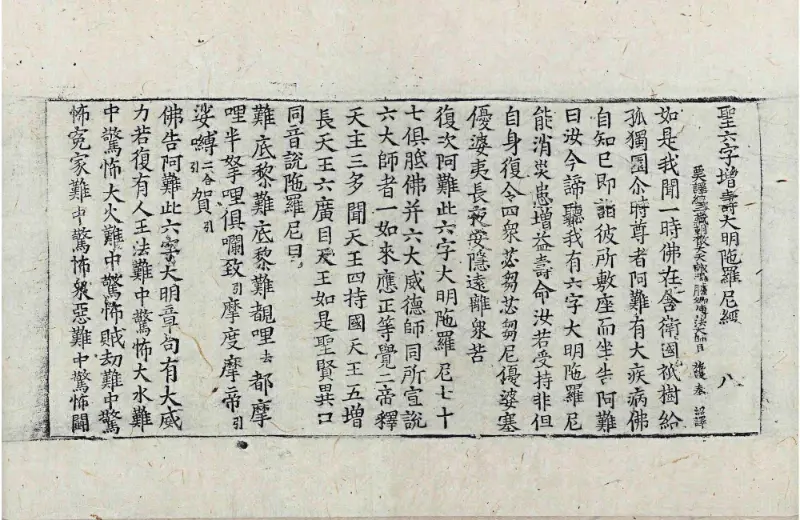 聖六字增壽大明陁羅尼經　八
西譯經三藏朝散大夫試鴻臚少卿傳法大師臣　施護奉　詔譯
如是我聞一時佛在舍衛國祇樹給
孤獨園尒時尊者阿難有大疾病佛
自知已即詣彼所敷座而坐告阿難
曰汝今諦聽我有六字大明陁羅尼
能消災患增益壽命汝若受持非但
自身復令四衆苾芻苾芻尼優婆塞
優婆夷長夜安隱遠離衆苦
復次阿難此六字大明陁羅尼七十
七俱胝佛并六大威德師同所宣說
六大師者一如來應正等覺二帝釋
天主三多聞天王四持國天王五增
長天王六廣目天王如是聖賢異口
同音說陁羅尼曰
難底黎難底黎難覩哩去都摩
哩半拏哩俱嚩致引摩度摩帝引
娑嚩二合引賀引
佛告阿難此六字大明章句有大威
力若復有人王法難中驚怖大水難
中驚怖大火難中驚怖賊劫難中驚
怖冤家難中驚怖衆惡難中驚怖鬭